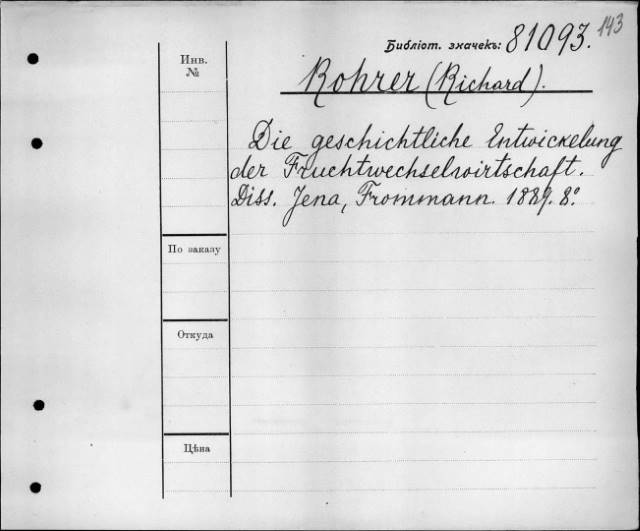 143
Библіот. значекъ: 81093.
Инв.
№
Rohrer (Richard).
Die geschichtliche Entwickelung
der Fruchtwechselwirtschaft.
Diss. Jena, Frommann. 1889. 8º
По заказу
Откуда
Цѣна